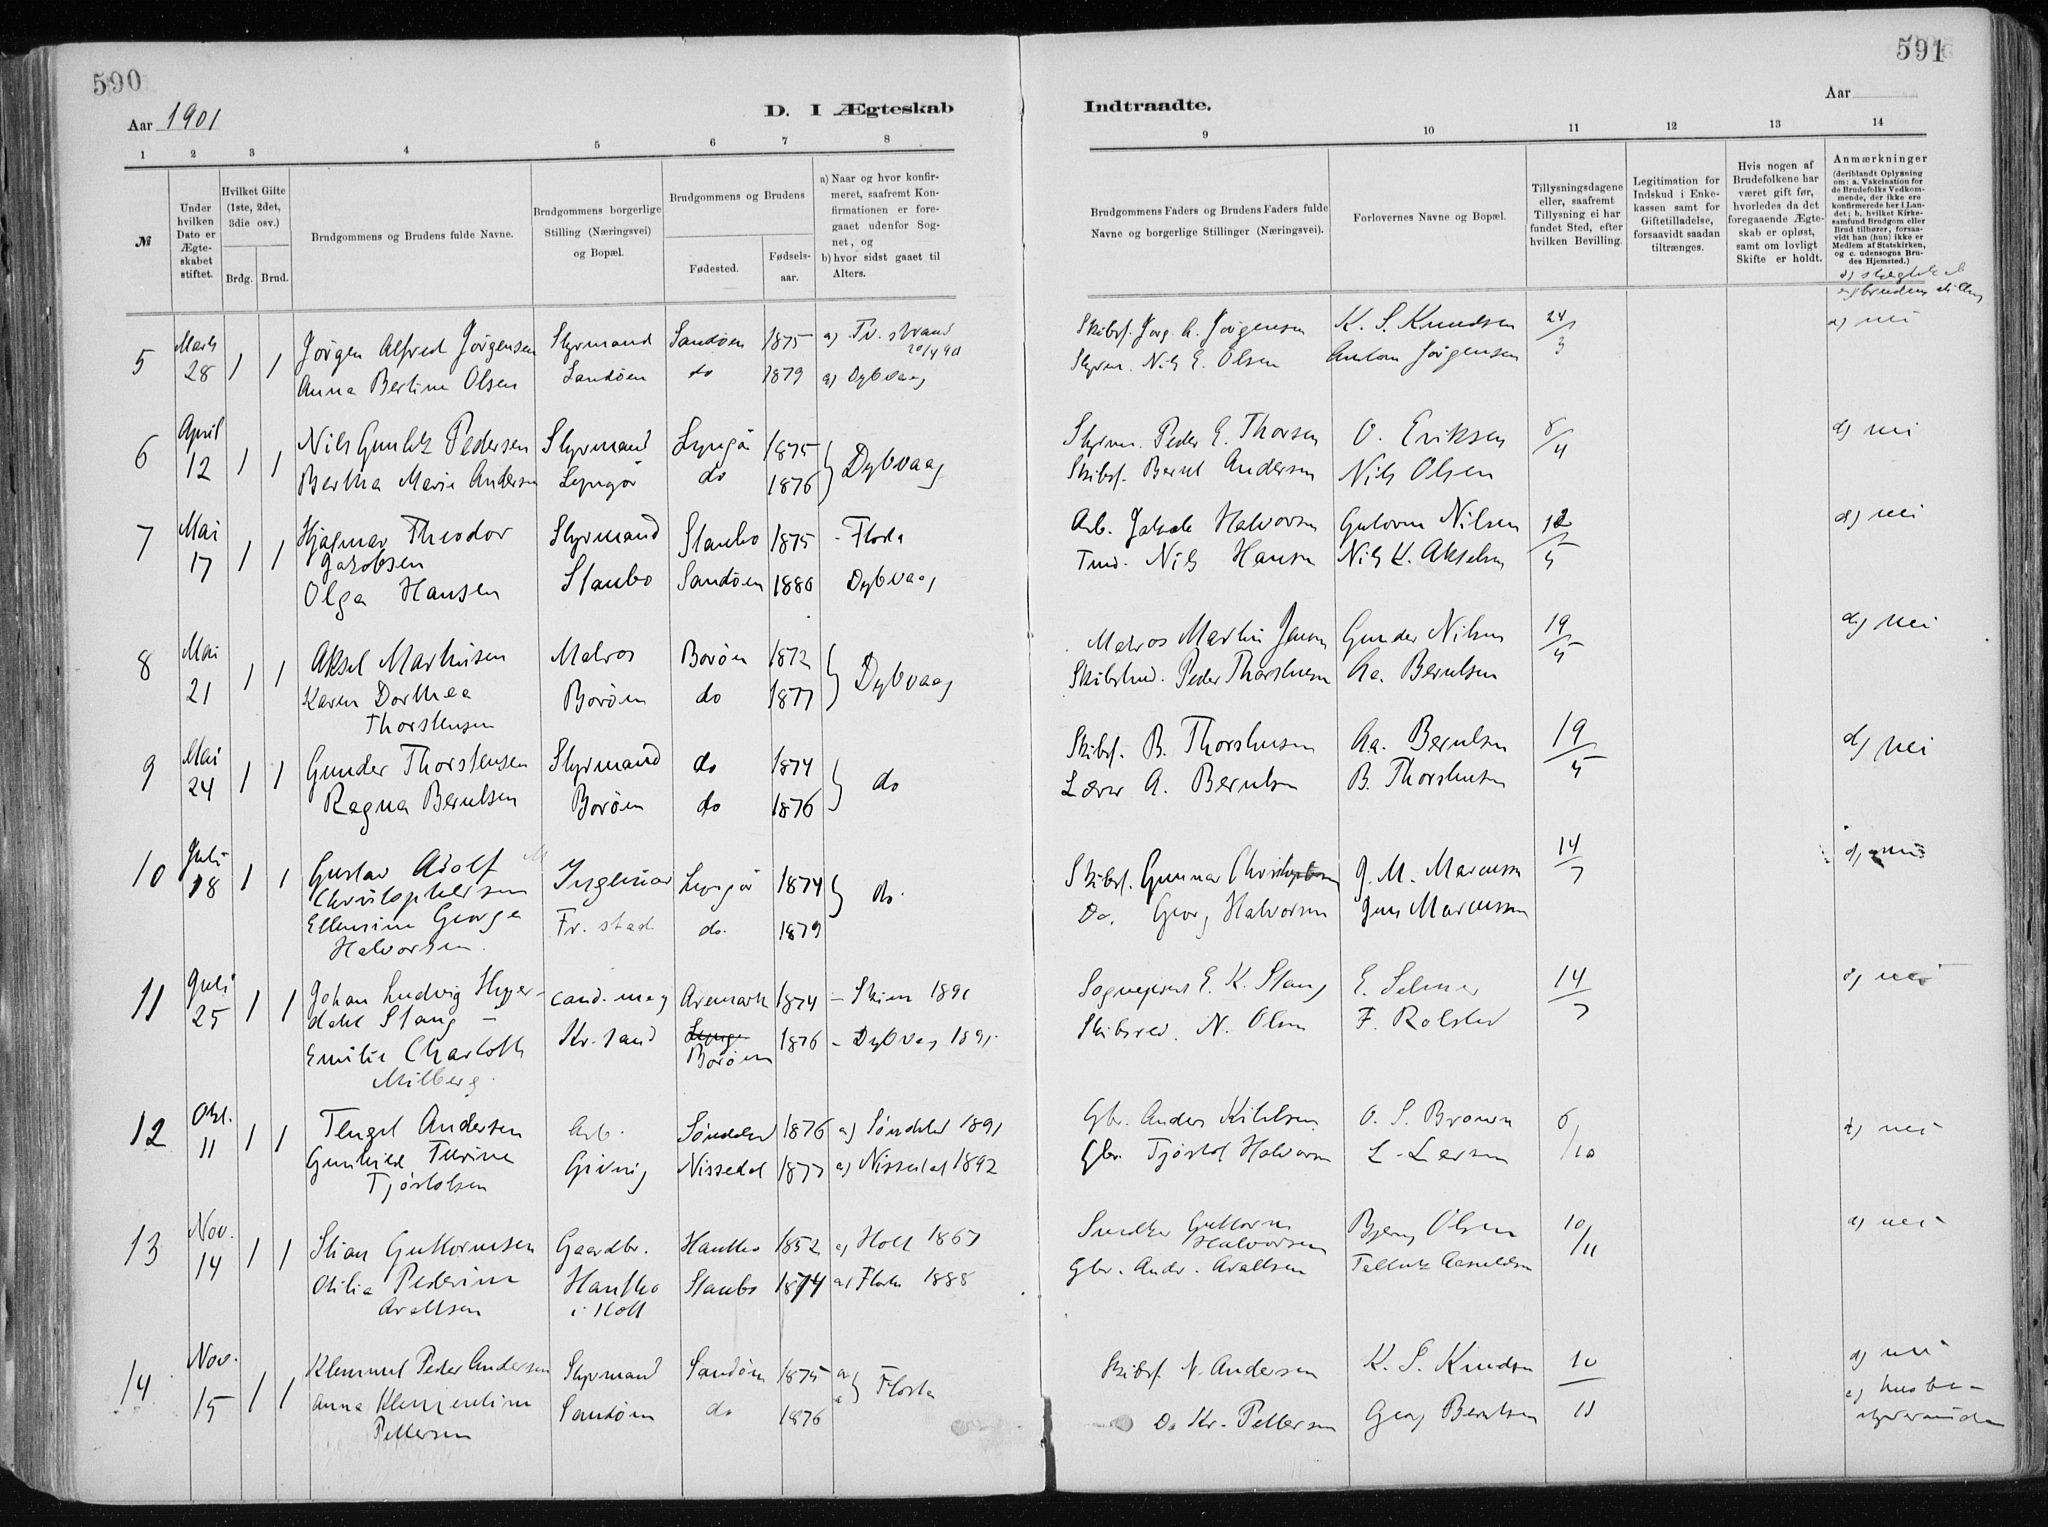 590
Aar 1901
D. I Ægteskab
1 2 3 4 5 6 7 8
№
Under hvilken Dato er Ægteskabet stiftet.
Hvilket Gifte (1ste, 2det, 3die osv.)
Brdg. Brud.
Brudgommens og Brudens fulde Navne.
Brudgommens borgerlige Stilling (Næringsvei) og Bopæl.
Brudgommens og Brudens
Fødested. Fødselsaar.
a) Naar og hvor konfirmeret, saafremt Konfirmationen er foregaaet udenfor Sognet, og
b) hvor sidst gaaet til Alters.
5 Marts 28 1 1 Jørgen Alfred Jørgensen Styrmand Sandøen 1875 a) Tv. strand
Anna Bertine Olsen Sandøen do 1879 a) Dybvaag
6 April 12 1 1 Nils Pedersen Styrmand Lyngør 1875
Bertha Marie Andersen Lyngør do 1876 Dybvaag
7 Mai 17 1 1 Hjalmar Theodor Styrmand Staubo 1875 - Flosta
Jakobsen
Olga Hansen Staubo Sandøen 1880 Dybvaag
8 Mai 21 1 1 Aksel Martinsen Matros Borøen 1872
Karen Dorthea Borøen do 1877 Dybvaag
Thorstensen
9 Mai 24 1 1 Gunder Thorstensen Styrmand do 1874
Ragna Berntsen Borøen do 1876 do
10 Juli 18 1 1 Gustav Adolf Ingeniør Lyngør 1874 do.
Christophersen
Ellensine George Fr. stad do. 1879
Halvorsen.
11 Juli 25 1 1 Johan Ludvig Hyer- cand. mag Aremark 1874 - Skien 1891
dahl Stang -
Emilie Charlotte Kr. sand Borøen 1876 - Dybvag 1891
Milberg.
12 Okt. 11 1 1 Tengel Andersen Arb. Søndeled 1876 a) Søndeled 1891
Gunhild Turine Givning Nissedal 1877 a) Nissedal 1892
Tjøstolsen
13 Nov. 14 1 1 Stian Guttormsen Gaardbr. Hantho 1852 a) Holt 1867
Otilia Pederine Hantho Staubo 1874 a) Flosta 1888
Avaltsen i Holt
14 Nov. 15 1 1 Klemmet Peder Andersen Styrmand Sandøen 1875 a)
Anna Klementine Sandøen do 1876 a) Flosta
Pettersen
591
Aar
Indtraadte.
9 10 11 12 13 14
Brudgommens Faders og Brudens Faders fulde Navne og borgerlige Stillinger (Næringsvei).
Forlovernes Navne og Bopæl.
Tillysningsdagene eller, saafremt Tillysning ei har fundet Sted, efter hvilken Bevilling.
Legitimation for Indskud i Enkekassen samt for Giftetilladelse, forsaavidt saadan tiltrænges.
Hvis nogen af Brudefolkene har været gift før, hvorledes da det foregaaende Ægteskab er opløst, samt om lovligt Skifte er holdt.
Anmærkninger
(deriblandt Oplysning om: a. Vakcination for de Brudefolks Vedkommende, der ikke ere konfirmerede her i Landet; b. hvilket Kirkesamfund Brudgom eller Brud tilhører, forsaavidt han (hun) ikke er Medlem af Statskirken, og c. udensogns Brudes Hjemsted.)
Skibsf. Jørg. A. Jørgensen K. S. Knudsen 24/3 d) nei
Styrm. Nils E. Olsen Anton Jørgensen
Styrm. Peder E. Thorsen O. Eriksen 8/4 d) nei
Skibsf. Bernt Andersen Nils Olsen
Arb. Jakob Halvorsen Gutorm Nilsen 12/5 d) nei
Tmd. Nils Hansen Nils K. Akselsen
Matros Martin Jensen Gunder Nilsen 19/5 d) nei
Peder Thorstensen Aa. Berntsen
Skibsf. B. Thorstensen Aa. Berntsen 19/5 d) nei
Lærer A. Berntsen B. Thorstensen
Skibsf. Gunnar Christophersen J. M. Marcussen 14/7 d) nei
Do. Georg Halvorsen Jens Marcussen
Sogneprest E. K. Stang E. Selmer 14/7 d) nei
Skibsred. N. Olsen F. Rolsted
Gbr. Anders Kittelsen O. S. Brown 6/10 d) nei
Gbr. Tjøstol Halvorsen L. Larsen
Snedker Guttorm Halvorsen Bjørn Olsen 10/11 d) nei
Gbr. Andr. Avaltsen
Skibsf. N. Andersen K. S. Knudsen 10/11 d) nei
Do Kr. Pettersen Georg Berntsen